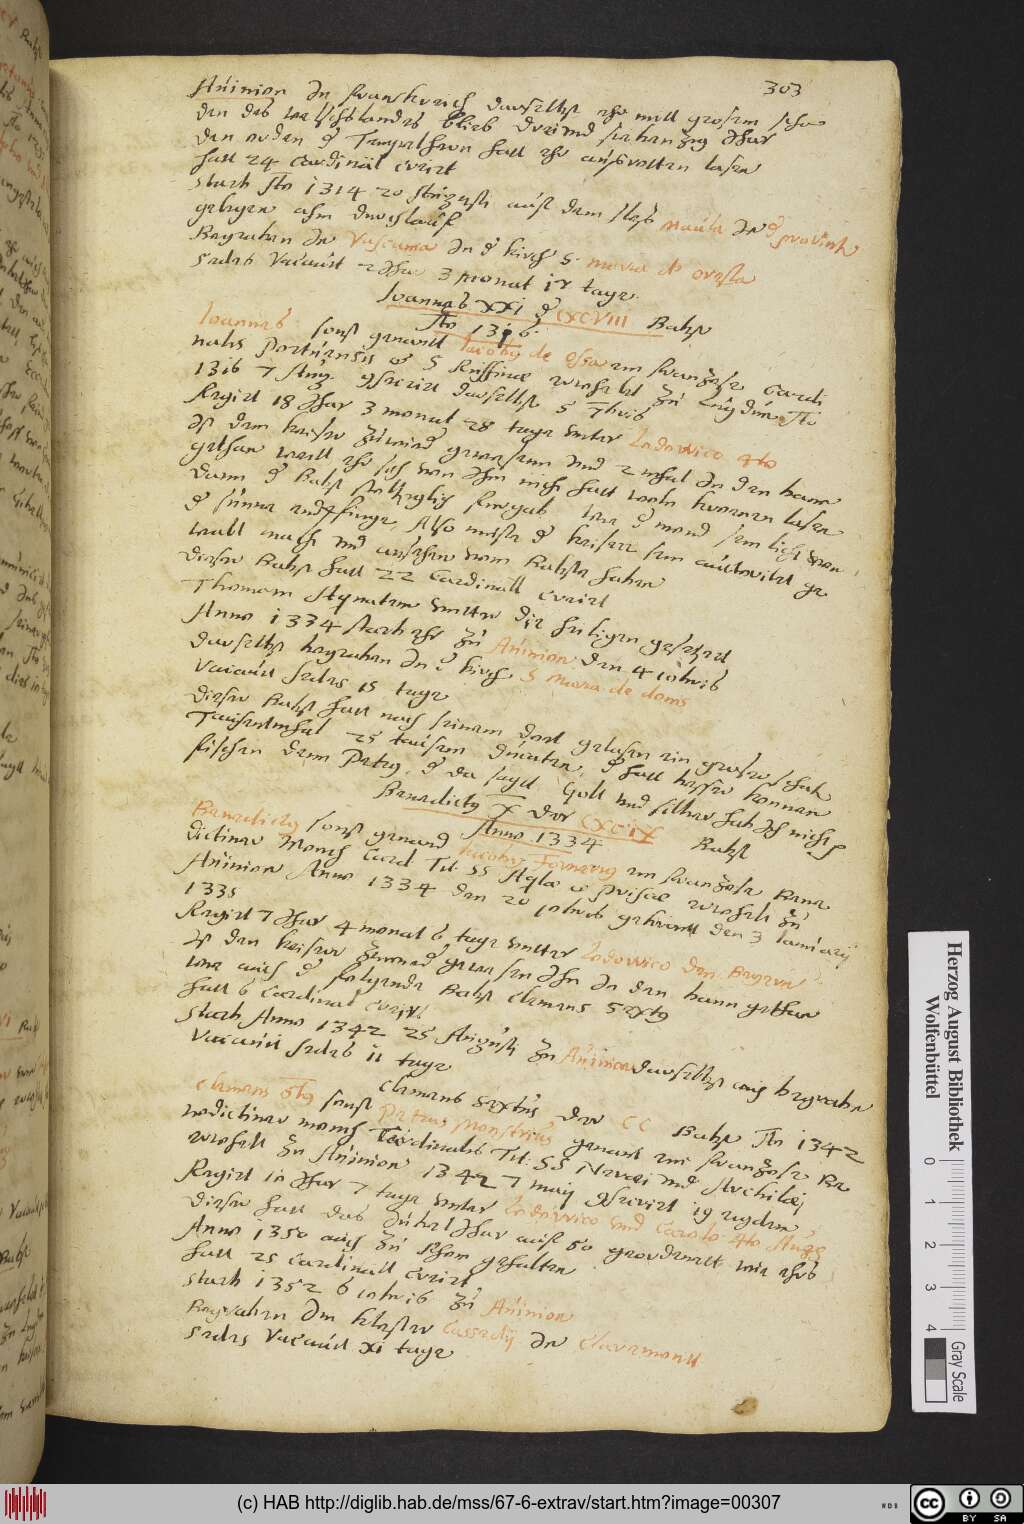 303
Auinion In franckreich daselbst ehr mitt grosem scha
den des welschslandes blieb dreiund siebenzig Jhar
den orden d Tempelherrn hatt ehr ausrotten lasen
hatt 24 Cardinäl creirt
starb Ao 1314 20 Augusti auf dem sloß Mauka In d prouintz
gelegen ahm durchlauf
Begraben In Vascuma In d kirch S. maria de oresta
Sedes Vacauit 2 Jhar 3 monat 17 tage
Joannes XXI d CXCVIII Babst
Ao 1316
Joannes sonst genantt Jacobus de Ossa ein franzose Cardi
nals Portuensis & S Ruffinæ erwehlet zu Lugdun Ao
1316 7 Aug. gecreirt daselbst 5 7bris
Regirt 18 Jhar 3 monat 28 tage unter Lodowico 4to
Ist dem keiser zuwied gewesenn und 2 mhal In den bann
gethan weill ehr sich von Ihm nicht hatt woln kronen lasen
Dann d Babst stoltziglich furgab wie d mond sein licht von
d sonne entpfinge Also muste d keiser sein autoritet ge
walt macht und ansehen vom Babste haben
Dieser Babst hatt 22 Cardinäll creirt
Thomam Aquinatem unter die heiligen gesetzet
Anno 1334 starb ehr zu Auinion den 4 10bris
Daselbst begraben In d kirch S Maria de doms
Vacauit sedes 15 tage
Dieser Babst hatt nach seinem dott gelasen ein groser schatz
Tausentmhal 25 tausen ducaten, d hatt besser konnen
fischen denn Petrus, d da sagt Golt und silber hab Ich nicht
Benedictus X der CXCIX Babst
Anno 1334
Benedictus sonst genand Jacobus Fornerius ein franzose Bene
dictiner Monch Card Tit. SS Aqlæ & priscæ erwehlt zu
Auinion Anno 1334 den 20 10bris gekrontt den 3 Januarij
1335
Regirt 7 Jhar 4 monat 6 tage unter Lodowico dem Beyern
Ist den keiser zuwied gewesen Ihn In den bann gethan
wie auch d folgende Babst Clemens Sextus
hatt 6 Cardinal creirt
Starb Anno 1342 25 Augusti zu Auinion daselbst auch begraben
Vacauit sedes 11 tage
Clemens Sextus der CC Babst Ao 1342
Clemens 6tus sonst Petrus Monstrius genant ein franzose Be
nedictiner monch Cardinalis Tit. SS Nerei und Archilei
erwehlt zu Auinion 1342 7 maij gecreirt 19 eiusdem
Regirt 10 Jhar 7 tage unter Lodowico und Carolo 4to Augs
Dieser hatt das Jubel Jhar auf 50 geordenett wie ehrs
Anno 1350 auch zu Rhom gehalten
hatt 25 Cardinall creirt
Starb 1352 6 10bris zu Auinion
Begraben Im kloster Cassedij In Claremontt
Sedes Vacauit XI tage
Herzog August Bibliothek
Wolfenbüttel
0 1 2 3 4
Gray Scale
(c) HAB http://diglib.hab.de/mss/67-6-extrav/start.htm?image=00307
WDB
cc BY SA